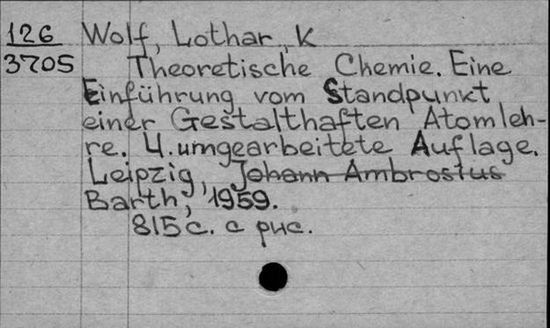 126 Wolf, Lothar, K
3705 Theoretische Chemie. Eine
Einführung vom Standpunkt
einer Gestalthaften Atomleh-
re. 4. umgearbeitete Auflage.
Leipzig, Johann Ambrosius
Barth, 1959.
815 c. с рис.